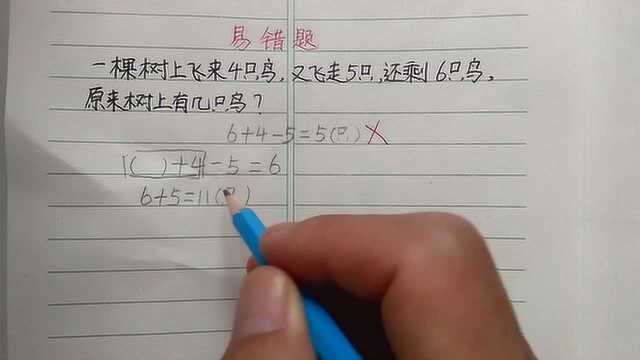 易错题
一棵树上飞来4只鸟,又飞走5只,还剩6只鸟,
原来树上有几只鸟?
6+4-5=5(只)X
( )+4-5=6
6+5=11(只)